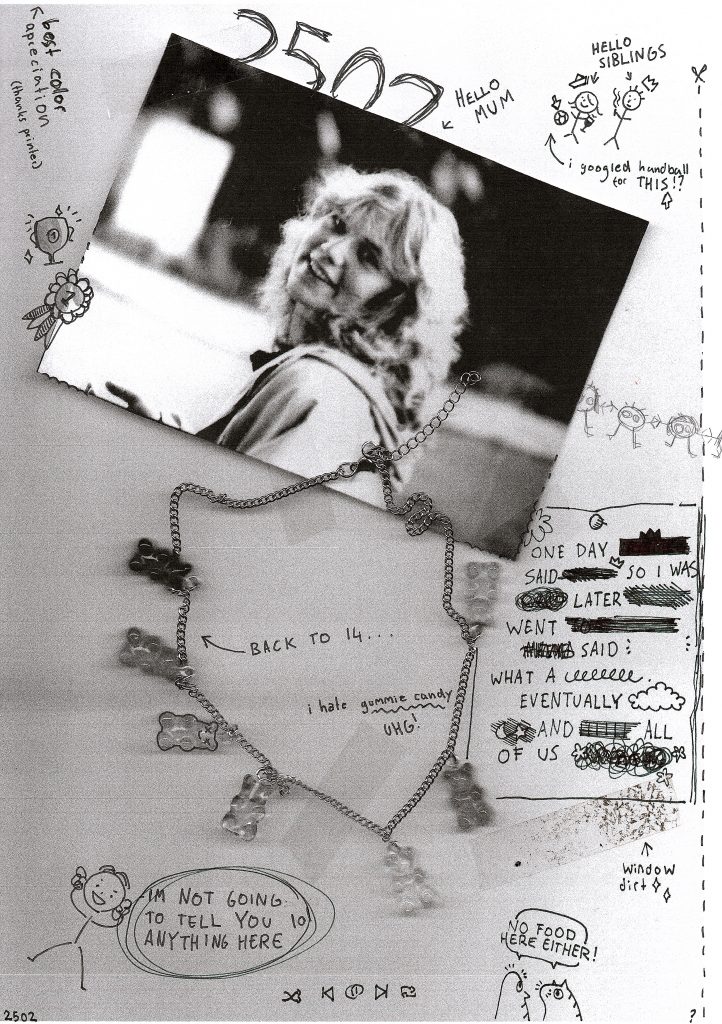 best color
apreciation
(thanks printer)
2502
HELLO
MUM
HELLO
SIBLINGS
i googled handball
for THIS!?
1
ONE DAY
SAID SO I WAS
LATER
WENT
SAID:
WHAT A
EVENTUALLY
AND ALL
OF US
BACK TO 14...
i hate gummie candy
UHG!
window
dirt
IM NOT GOING
TO TELL YOU
ANYTHING HERE
NO FOOD
HERE EITHER!
2502
?